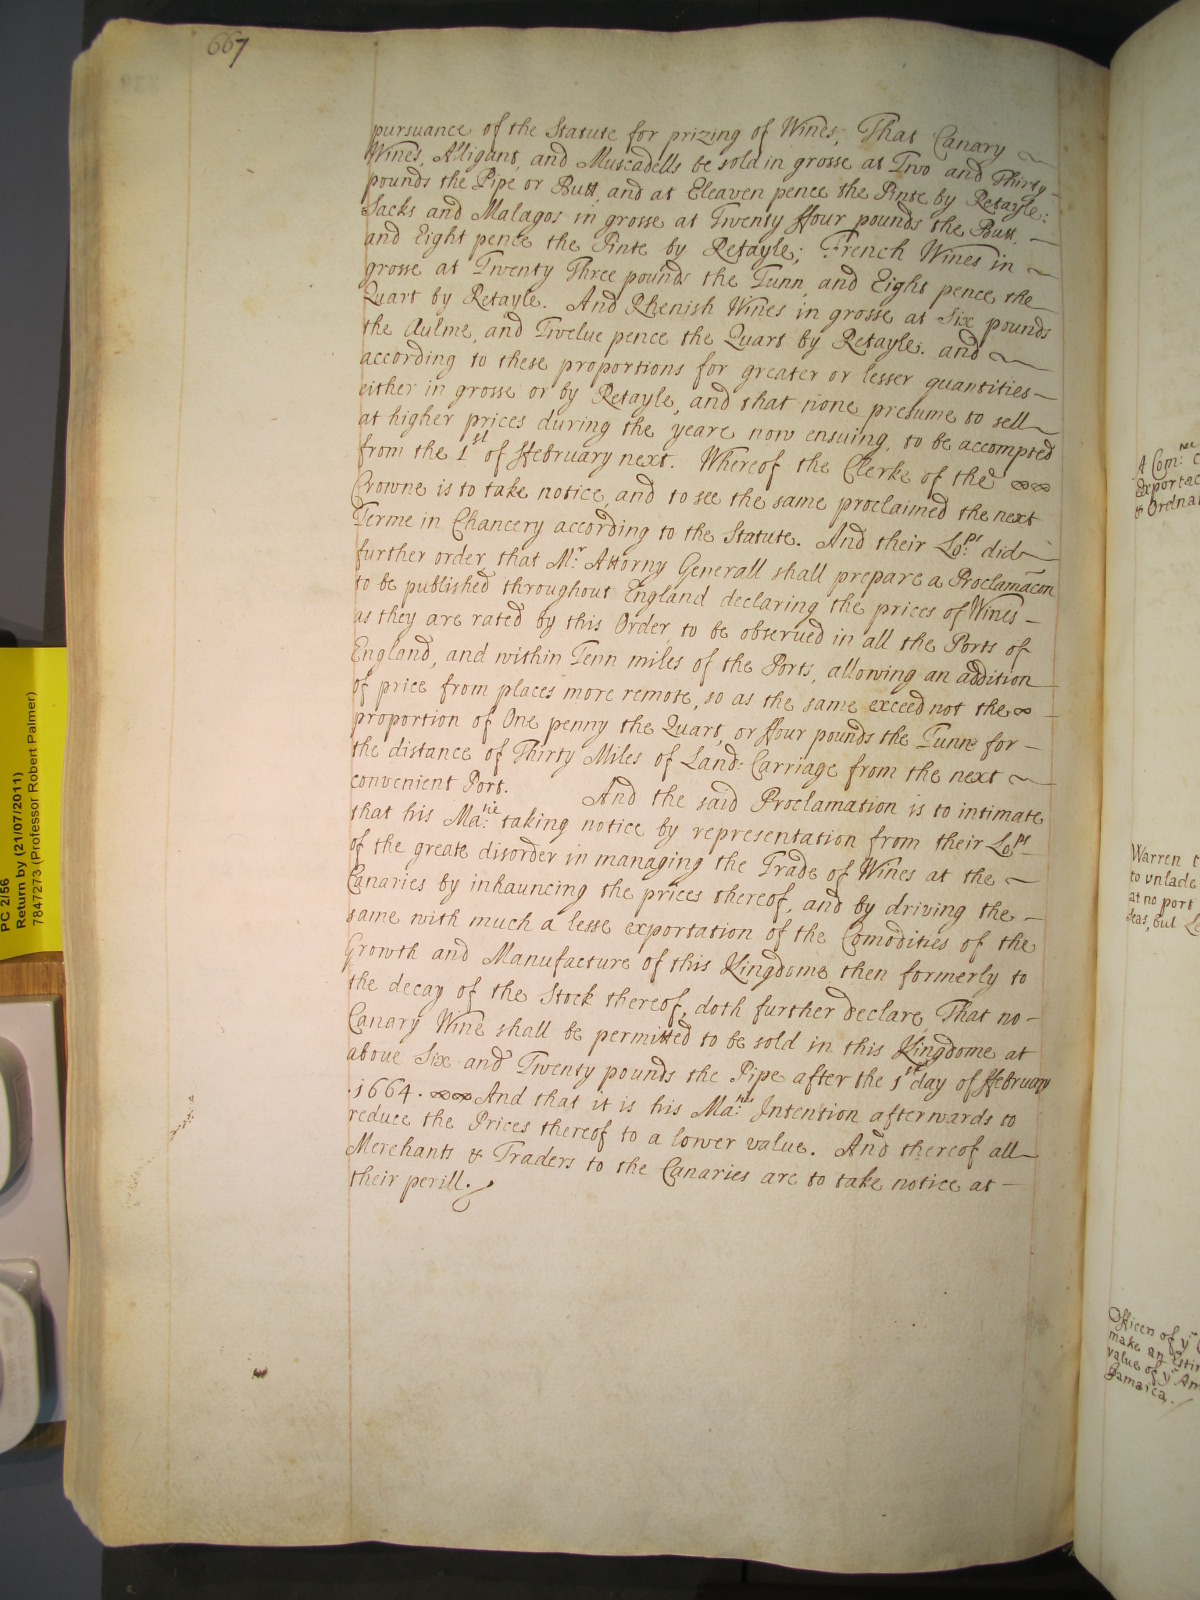 667
pursuance of the Statute for prizing of Wines; That Canary
Wines, Alligant, and Muscadells be sold in grosse at Two and Thirty
pounds the Pipe or Butt, and at Eleaven pence the Pinte by Retayle:
Sacks and Malagos in grosse at Twenty ffour pounds the Butt,
and Eight pence the Pinte by Retayle; French Wines in
grosse at Twenty Three pounds the Tunn, and Eight pence the
Quart by Retayle. And Rhenish Wines in grosse at Six pounds
the Aulme, and Twelue pence the Quart by Retayle. and
according to these proportions for greater or lesser quantities
either in grosse or by Retayle, and that none presume to sell
at higher prices during the yeare now ensuing, to be accompted
from the 1st of ffebruary next. Whereof the Clerke of the
Crowne is to take notice, and to see the same proclaimed the next
Terme in Chancery according to the Statute. And their Lo:ps did
further order that Mr Attorny Generall shall prepare a Proclamacon
to be published throughout England declaring the prices of Wines
as they are rated by this Order to be observed in all the Ports of
England, and within Tenn miles of the Ports, allowing an addition
of price from places more remote, so as the same exceed not the
proportion of One penny the Quart, or ffour pounds the Tunne for
the distance of Thirty Miles of Land-Carriage from the next
convenient Port. And the said Proclamation is to intimate
that his Ma:tie taking notice by representation from their Lo:ps
of the greate disorder in managing the Trade of Wines at the
Canaries by inhauncing the prices thereof, and by driving the
same with much a lesse exportation of the Comodities of the
Growth and Manufacture of this Kingdome then formerly to
the decay of the Stock thereof, doth further declare That no
Canary Wine shall be permitted to be sold in this Kingdome at
aboue Six and Twenty pounds the Pipe after the 1st day of ffebruary
.1664. And that it is his Ma:ties Intention afterwards to
reduce the Prices thereof to a lower value. And thereof all
Merchants & Traders to the Canaries are to take notice at
their perill.
PC 2/56
Return by (21/07/2011)
7847273 (Professor Robert Palmer)
A Com:
Exportac
& Ordnan
Warren t
to vnlade
at no port
seas, but
Officers of ye
make an Estim
value of ye Am
Jamaica.